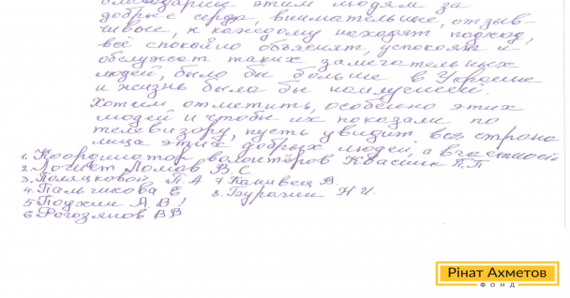 благодарны этим людям за
добрые сердца, внимательные, отзыв-
чивые, к каждому находят подход,
всё спокойно объяснят, успокоят и
обслужат таких замечательных
людей, было бы больше в Украине
и жизнь была бы наилучшей.
Хотим отметить, особенно этих
людей и чтобы их показали по
телевизору, пусть увидит вся страна
лица этих добрых людей, а в частности
1. Координатор волонтёров Квасник Г.П
2. Ломов В. С.
3. П. А 7
4. Пальчикова Е 8. Н И.
5 А В
6 В В
Рінат Ахметов
ФОНД